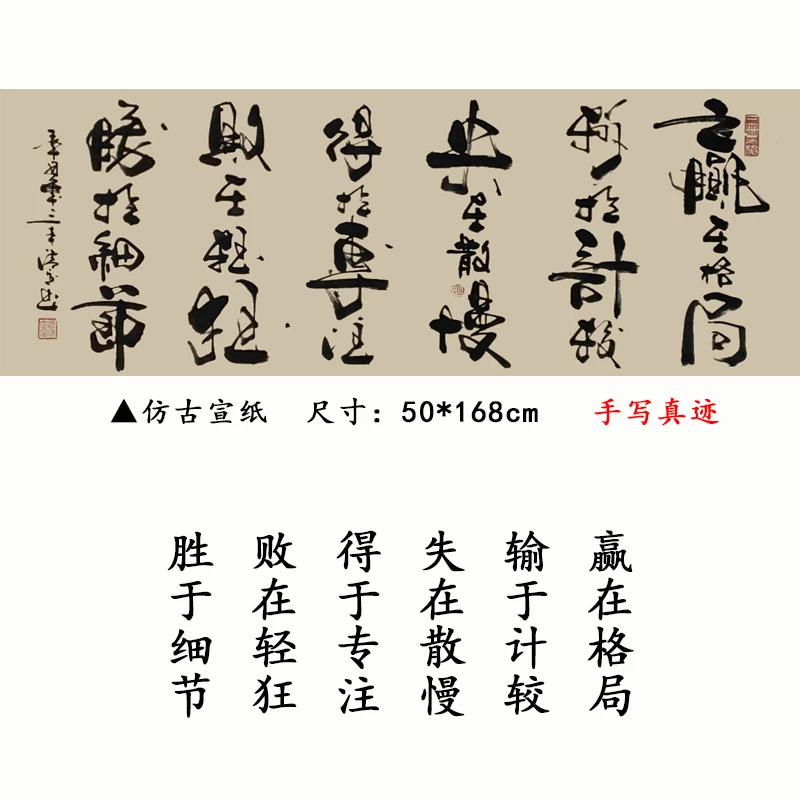 赢在格局
输于计较
失在散慢
得于专注
败在轻狂
胜于细节
▲仿古宣纸 尺寸：50*168cm 手写真迹
赢在格局
输于计较
失在散慢
得于专注
败在轻狂
胜于细节